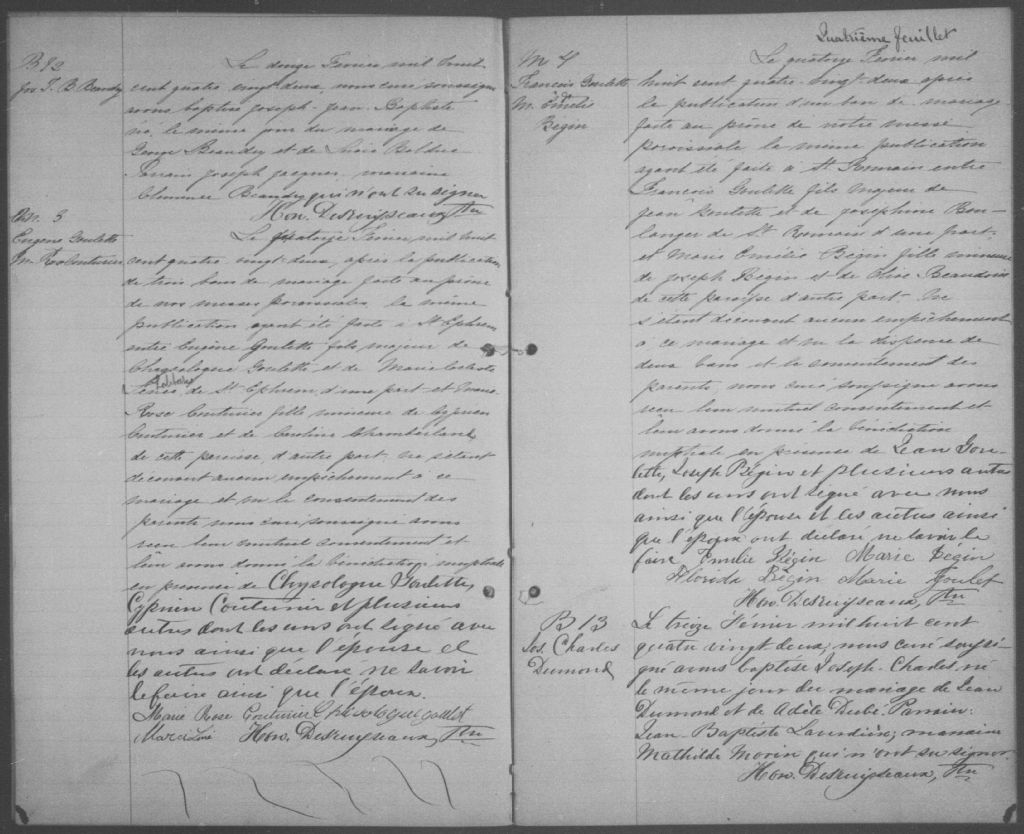 B 12
Jos J. B. Beaudry
Le douze Février mil huit
cent quatre vingt deux, nous curé soussigné
avons baptisé Joseph-Jean-Baptiste
né le même jour du mariage de
George Beaudry et de Bolduc
Parrain Joseph Jacques, marraine
Clemence Beaudry qui n'ont su signer
Hon. Desruisseaux, Ptre
M. 3
Eugène Goulette
M. R. Couturier
Le quatorze Février mil huit
cent quatre vingt deux, après la publication
de trois bans de mariage faite au prône
de nos messes paroissiales, la même
publication ayant été faite à St Ephrem
entre Eugène Goulette fils majeur de
Chrysologue Goulette et de Marie Celeste
de St Ephrem d'une part et Marie
Rose Couturier fille mineure de Cyprien
Couturier et de Caroline Chamberland
de cette paroisse d'autre part, ne s'étant
découvert aucun empêchement à ce
mariage et vu le consentement des
parents nous curé soussigné avons
reçu leur mutuel consentement et
leur avons donné la bénédiction nuptiale
en présence de Chrysologue Goulette,
Cyprien Couturier et plusieurs
autres dont les uns ont signé avec
nous ainsi que l'épouse et
les autres ont déclaré ne savoir
le faire ainsi que l'époux.
Marie Rose Couturier Chrisologue goulet
Hon. Desruisseaux, Ptre
Quatrième feuillet
M 4
François Goulette
&
M. Émélie
Bégin
Le quatorze Février mil
huit cent quatre-vingt-deux après
la publication d'un ban de mariage
faite au prône de notre messe
paroissiale la même publication
ayant été faite à St Romain entre
François Goulette fils majeur de
Jean Goulette et de Josephine Bou-
langer de St Romain d'une part,
et Marie Émélie Bégin fille mineure
de Joseph Bégin et de Beaudoin
de cette paroisse d'autre part. Ne
s'étant découvert aucun empêchement
à ce mariage et vu la dispense de
deux bans et le consentement des
parents nous curé soussigné avons
reçu leur mutuel consentement et
leur avons donné la bénédiction
nuptiale en présence de Jean Gou-
lette, Joseph Bégin et plusieurs autres
dont les uns ont signé avec nous
ainsi que l'épouse et les autres ainsi
que l'époux ont déclaré ne savoir le
faire Emélie Bégin Marie Bégin
Florida Bégin Marie Goulet
Hon. Desruisseaux, Ptre
B 13
Jos. Charles
Dumond
Le treize Février mil huit cent
quatre vingt deux, nous curé soussi-
gné avons baptisé Joseph-Charles, né
le même jour du mariage de Jean
Dumond et de Adèle Dubé. Parrain:
Jean-Baptiste Laverdière; marraine
Mathilde Morin qui n'ont su signer.
Hon. Desruisseaux, Ptre